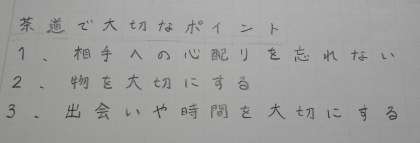 茶道で大切なポイント
1、相手への心配りを忘れない
2、物を大切にする
3、出会いや時間を大切にする